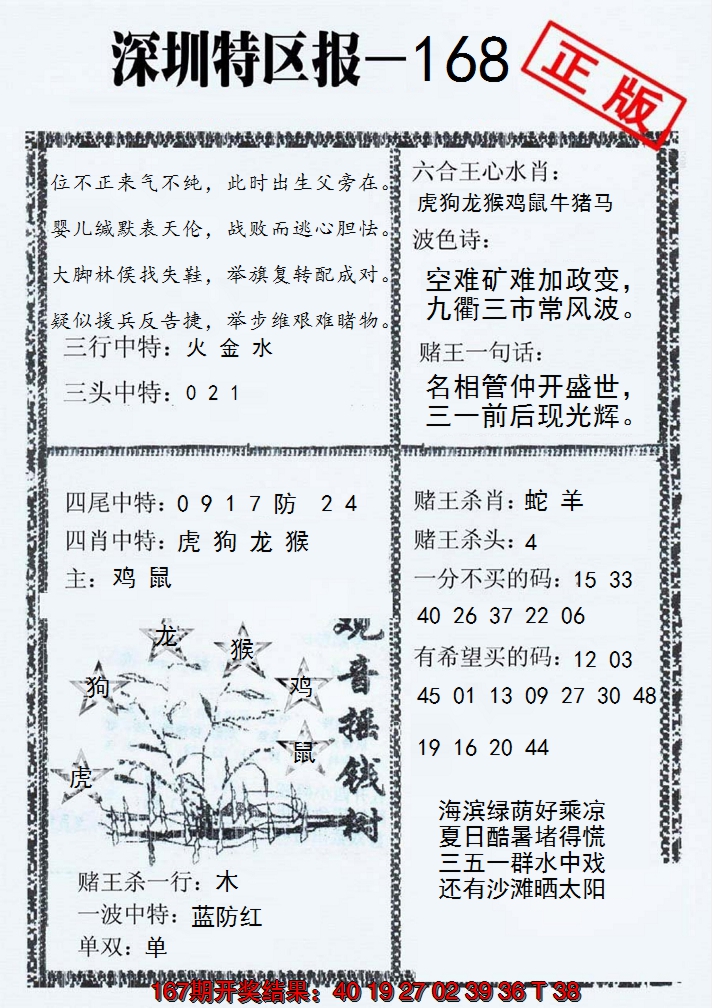 深圳特区报－168
正版
位不正来气不纯，此时出生父旁在。
婴儿缄默表天伦，战败而逃心胆怯。
大脚林侯找失鞋，举旗复转配成对。
疑似援兵反告捷，举步维艰难睹物。
三行中特：火 金 水
三头中特：0 2 1
六合王心水肖：
虎狗龙猴鸡鼠牛猪马
波色诗：
空难矿难加政变，
九衢三市常风波。
赌王一句话：
名相管仲开盛世，
三一前后现光辉。
四尾中特：0 9 1 7 防 2 4
四肖中特：虎 狗 龙 猴
主：鸡 鼠
龙
猴
狗
鸡
鼠
虎
观音摇钱树
赌王杀一行：木
一波中特：蓝防红
单双：单
赌王杀肖：蛇 羊
赌王杀头：4
一分不买的码：15 33
40 26 37 22 06
有希望买的码：12 03
45 01 13 09 27 30 48
19 16 20 44
海滨绿荫好乘凉
夏日酷暑堵得慌
三五一群水中戏
还有沙滩晒太阳
167期开奖结果：40 19 27 02 39 36 T 38